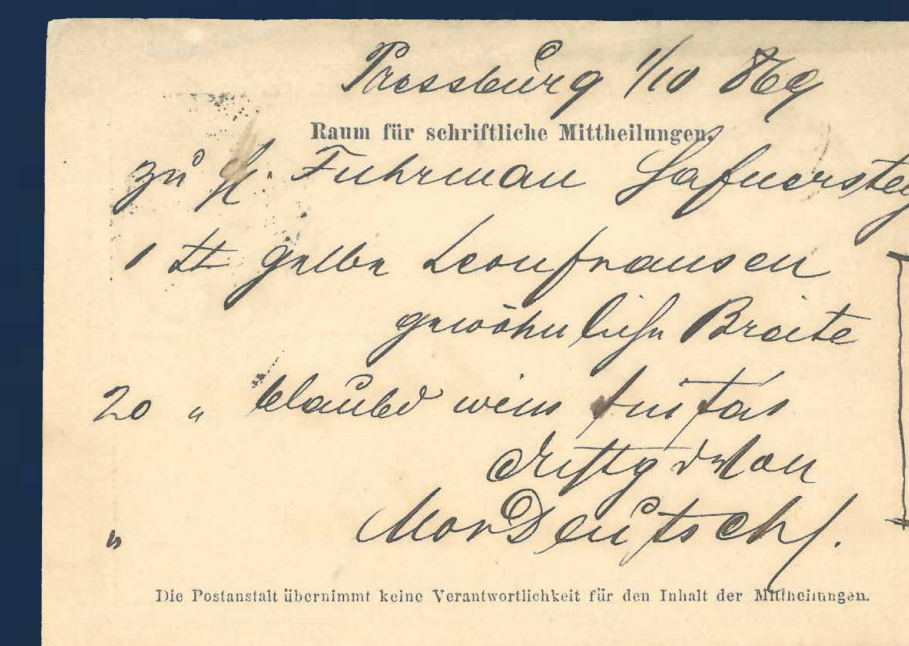 Pressburg 1/10 869
Raum für schriftliche Mittheilungen.
zu H. Fuhrman
1 gelbe Leonfransen
gewöhnliche Breite
20 " weiss
Mor Deutsch
"
Die Postanstalt übernimmt keine Verantwortlichkeit für den Inhalt der Mittheilungen.